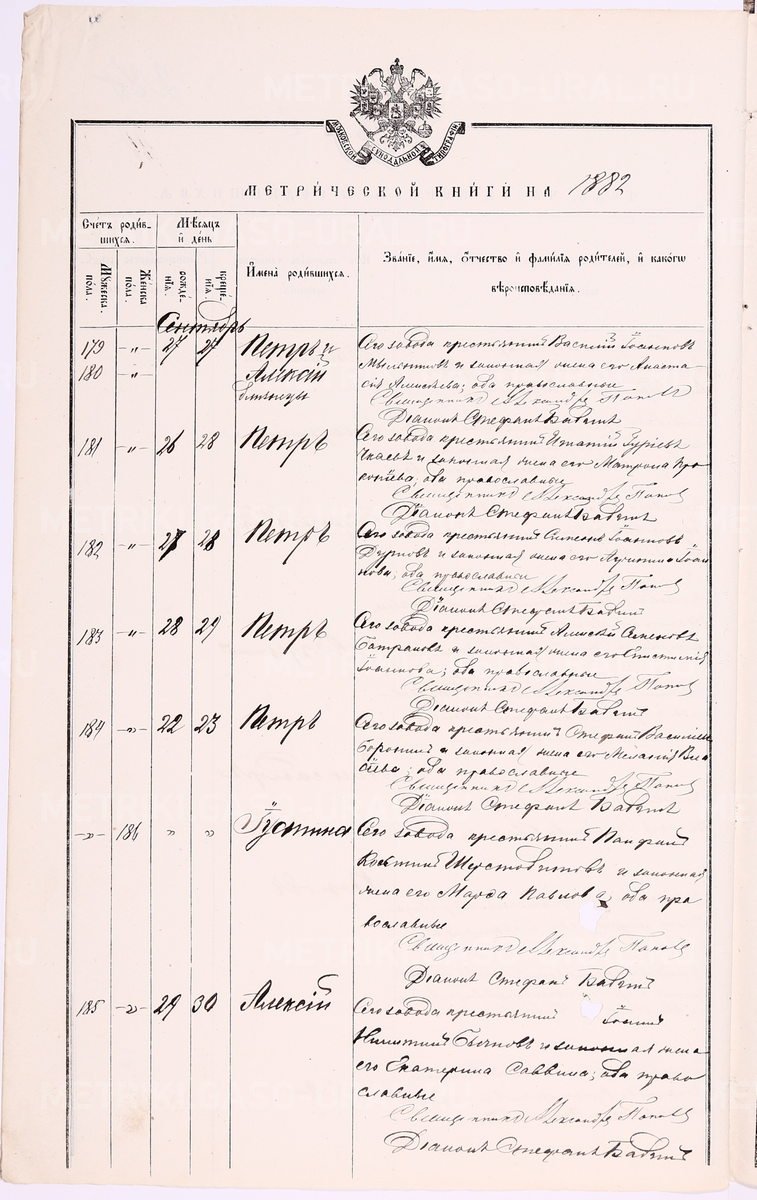 МОСКОВСКОЙ СѴНОДАЛЬНОЙ ТИПОГРАФІИ
МЕТРИ́ЧЕСКОЙ КНИ́ГИ НА 1882
Сче́тъ роди́в-
шихся.
Мѣ́сяцъ
и҆ де́нь
И҆мена̀ роди́вшихся.
Зва́нїе, и҆́мя, ѻ҆́тчество и҆ фами́лїя роди́телей, и҆ како́гѡ
вѣроисповѣ́данїя.
Мꙋ́жеска
по́ла.
Же́нска
по́ла.
рожде́-
нїя.
креще́-
нїя.
Сентябрь
179 -„- 27 27 Петръ и Сего завода крестьянинъ Василій Іоанновъ
180 -„- Алексій и законная жена его Анаста-
близнецы сія Алексѣева; оба православные
Священникъ Александръ Поповъ
Діаконъ Стефанъ
181 -„- 26 28 Петръ Сего завода крестьянинъ Игнатій Гурьевъ
и законная жена его Матрона Про-
копіева; оба православные
Священникъ Александръ Поповъ
Діаконъ Стефанъ
182 -„- 27 28 Петръ Сего завода крестьянинъ Симеонъ Іоанновъ
Дурновъ и законная жена его Іоан-
нова; оба православные
Священникъ Александръ Поповъ
Діаконъ Стефанъ
183 -„- 28 29 Петръ Сего завода крестьянинъ Алексій Семеновъ
и законная жена его
Іоаннова; оба православные
Священникъ Александръ Поповъ
Діаконъ Стефанъ
184 -„- 22 23 Петръ Сего завода крестьянинъ Стефанъ Васильевъ
и законная жена его Меланія Вла-
сіева; оба православные
Священникъ Александръ Поповъ
Діаконъ Стефанъ
-„- 186 „ „ Іустина Сего завода крестьянинъ
Шерстобитовъ и законная
жена его Марѳа Павлова, оба пра-
вославные
Священникъ Александръ Поповъ
Діаконъ Стефанъ
185 -„- 29 30 Алексій Сего завода крестьянинъ Іоаннъ
Бычковъ и законная жена
его Екатерина Саввина; оба право-
славные
Священникъ Александръ Поповъ
Діаконъ Стефанъ